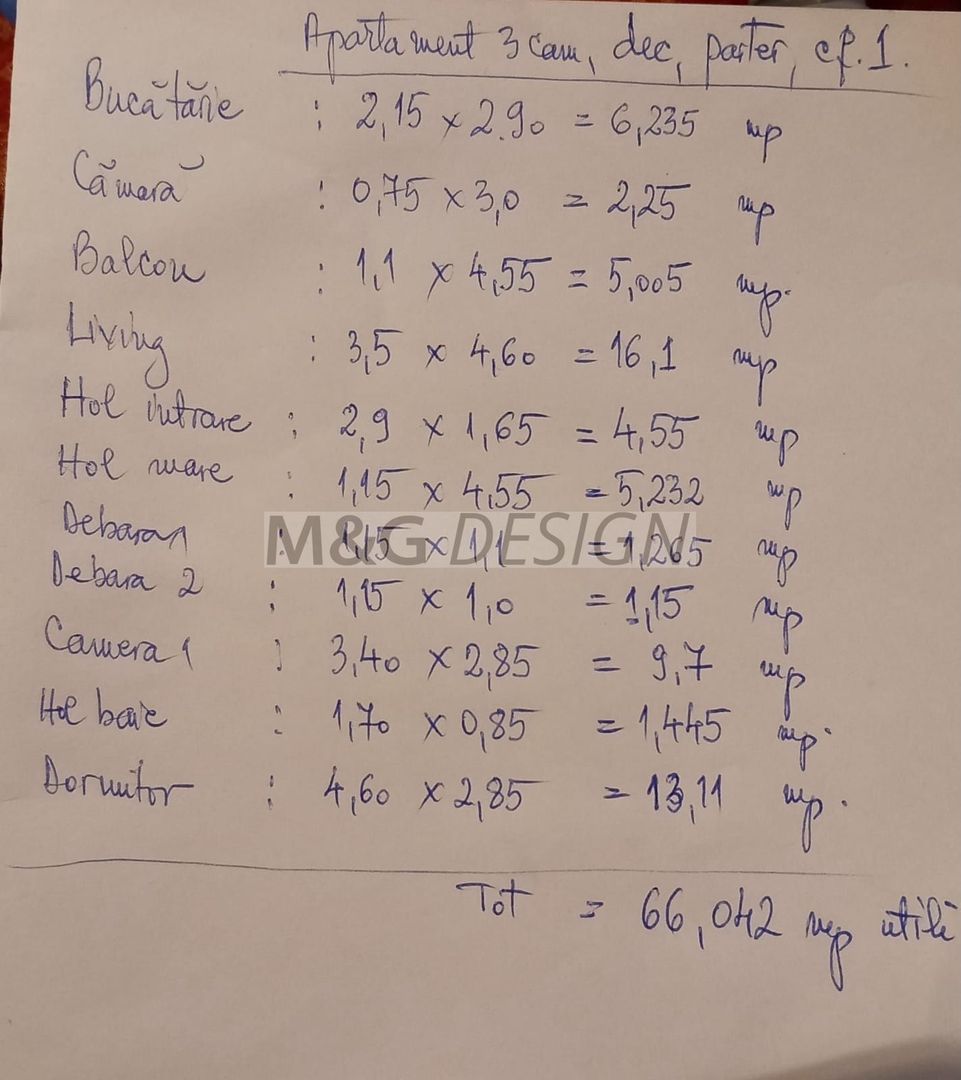 Apartament 3 cam, dec, parter, cf. 1.
Bucătărie : 2,15 x 2.90 = 6,235 mp
Cămară : 0,75 x 3,0 = 2,25 mp
Balcon : 1,1 x 4,55 = 5,005 mp.
Living : 3,5 x 4,60 = 16,1 mp
Hol intrare : 2,9 x 1,65 = 4,55 mp
Hol mare : 1,15 x 4,55 = 5,232 mp
Debara 1 : 1,15 x 1,1 = 1,265 mp
M&G DESIGN
Debara 2 : 1,15 x 1,0 = 1,15 mp
Camera 1 : 3,40 x 2,85 = 9,7 mp
Hol baie : 1,70 x 0,85 = 1,445 mp.
Dormitor : 4,60 x 2,85 = 13,11 mp.
Tot = 66,042 mp utili